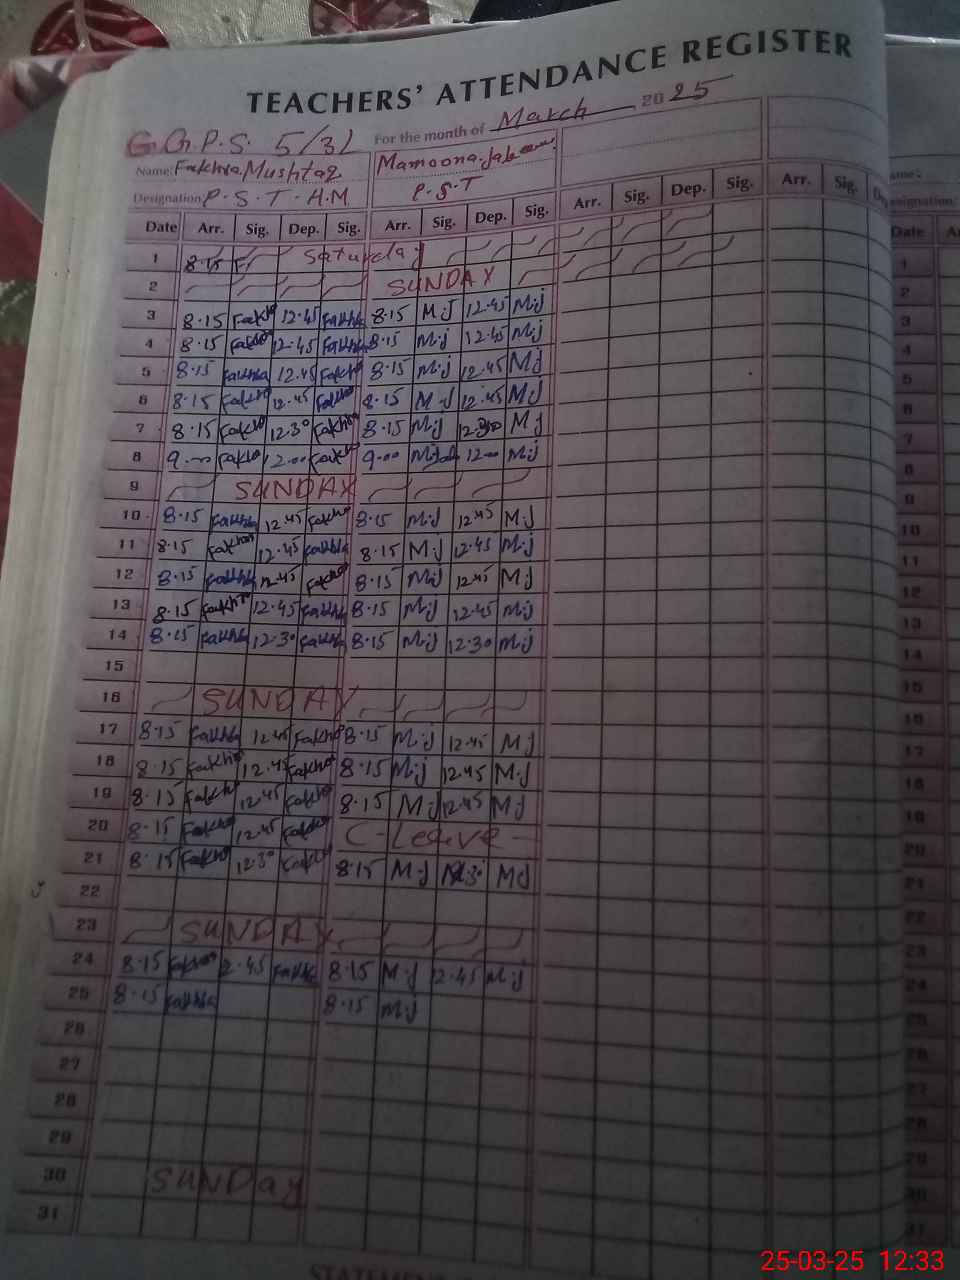 TEACHERS' ATTENDANCE REGISTER
G.G.P.S. 5/3L For the month of March 2025
Name: Fakhra Mushtaq Mamoona
Designation: P.S.T. H.M P.S.T
Date Arr. Sig. Dep. Sig. Arr. Sig. Dep. Sig. Arr. Sig. Dep. Sig. Arr. Sig.
1 8.15 Saturday
2 SUNDAY
3 8.15 Fakhra 12.45 Fakhra 8.15 M.J 12.45 M.J
4 8.15 Fakhra 12.45 Fakhra 8.15 M.J 12.45 M.J
5 8.15 Fakhra 12.45 Fakhra 8.15 M.J 12.45 M.J
6 8.15 Fakhra 12.45 Fakhra 8.15 M.J 12.45 M.J
7 8.15 Fakhra 12.30 Fakhra 8.15 M.J 12.30 M.J
8 9.00 Fakhra 12.00 Fakhra 9.00 M.J 12.00 M.J
9 SUNDAY
10 8.15 Fakhra 12.45 Fakhra 8.15 M.J 12.45 M.J
11 8.15 Fakhra 12.45 Fakhra 8.15 M.J 12.45 M.J
12 8.15 Fakhra 12.45 Fakhra 8.15 M.J 12.45 M.J
13 8.15 Fakhra 12.45 Fakhra 8.15 M.J 12.45 M.J
14 8.15 Fakhra 12.30 Fakhra 8.15 M.J 12.30 M.J
15
16 SUNDAY
17 8.15 Fakhra 12.45 Fakhra 8.15 M.J 12.45 M.J
18 8.15 Fakhra 12.45 Fakhra 8.15 M.J 12.45 M.J
19 8.15 Fakhra 12.45 Fakhra 8.15 M.J 12.45 M.J
20 8.15 Fakhra 12.45 Fakhra C-Leave
21 8.15 Fakhra 12.30 Fakhra 8.15 M.J 12.30 M.J
22
23 SUNDAY
24 8.15 Fakhra 2.45 Fakhra 8.15 M.J 2.45 M.J
25 8.15 Fakhra 8.15 M.J
26
27
28
29
30 SUNDay
31
25-03-25 12:33